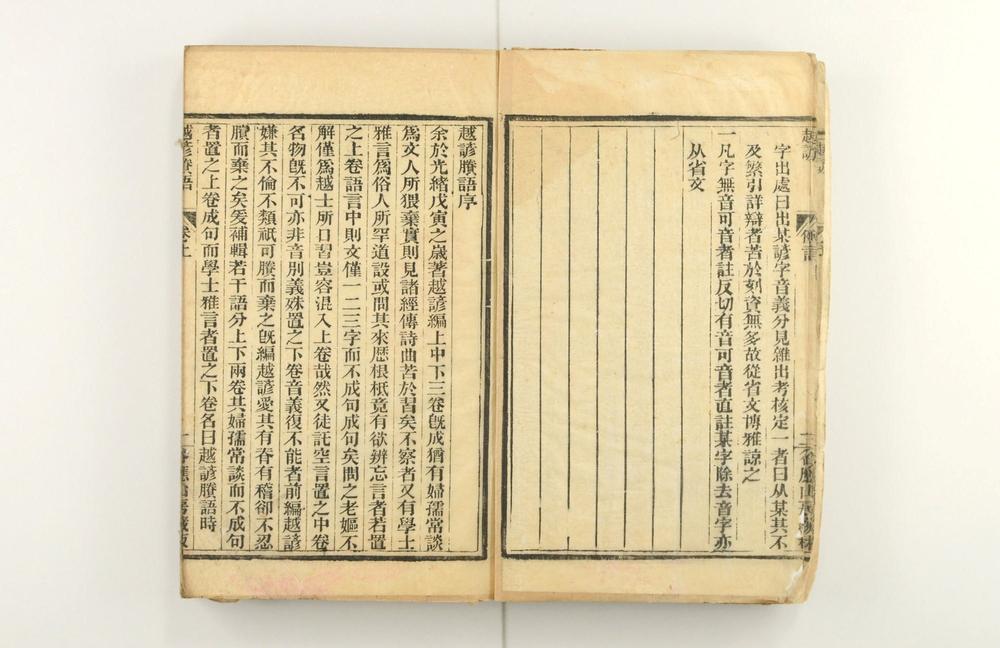 字出處曰出某諺字音義分見雜出考核定一者曰从某其不
及繁引詳辯者苦於刻資無多故從省文博雅諒之
一凡字無音可音者註反切有音可音者直註某字除去音字亦
从省文
越諺賸語序
余於光緖戊寅之歲著越諺編上中下三卷旣成猶有婦孺常談
爲文人所猥棄實則見諸經傳詩曲苦於習矣不察者又有學士
雅言爲俗人所罕道設或問其來歴根柢竟有欲辨忘言者若置
之上卷語言中則文僅一二三字而不成句成句矣問之老嫗不
解僅爲越士所口習豈容混入上卷哉然又徒託空言置之中卷
名物旣不可亦非音別義殊置之下卷音義復不能者前編越諺
嫌其不倫不類祇可賸而棄之旣編越諺愛其有脊有稽卻不忍
賸而棄之矣爰補輯若干語分上下兩卷其婦孺常談而不成句
者置之上卷成句而學士雅言者置之下卷名曰越諺賸語時
越諺賸語 卷上